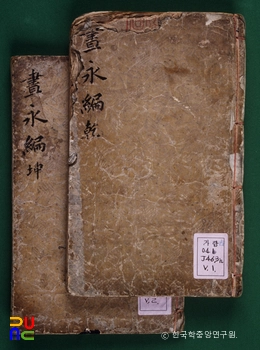 晝永編 乾
晝永編 坤
V. 1.
V. 2.
© 한국학중앙연구원